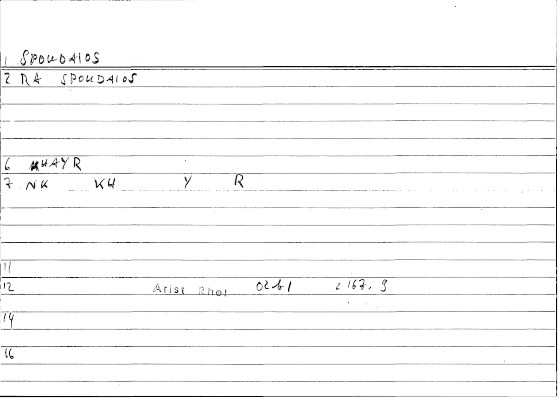 1 SPOUDAIOS
2 RA SPOUDAIOS
6 KHAYR
7 NK KH Y R
11
12 Arist Rhet 02b1 167.9
14
16